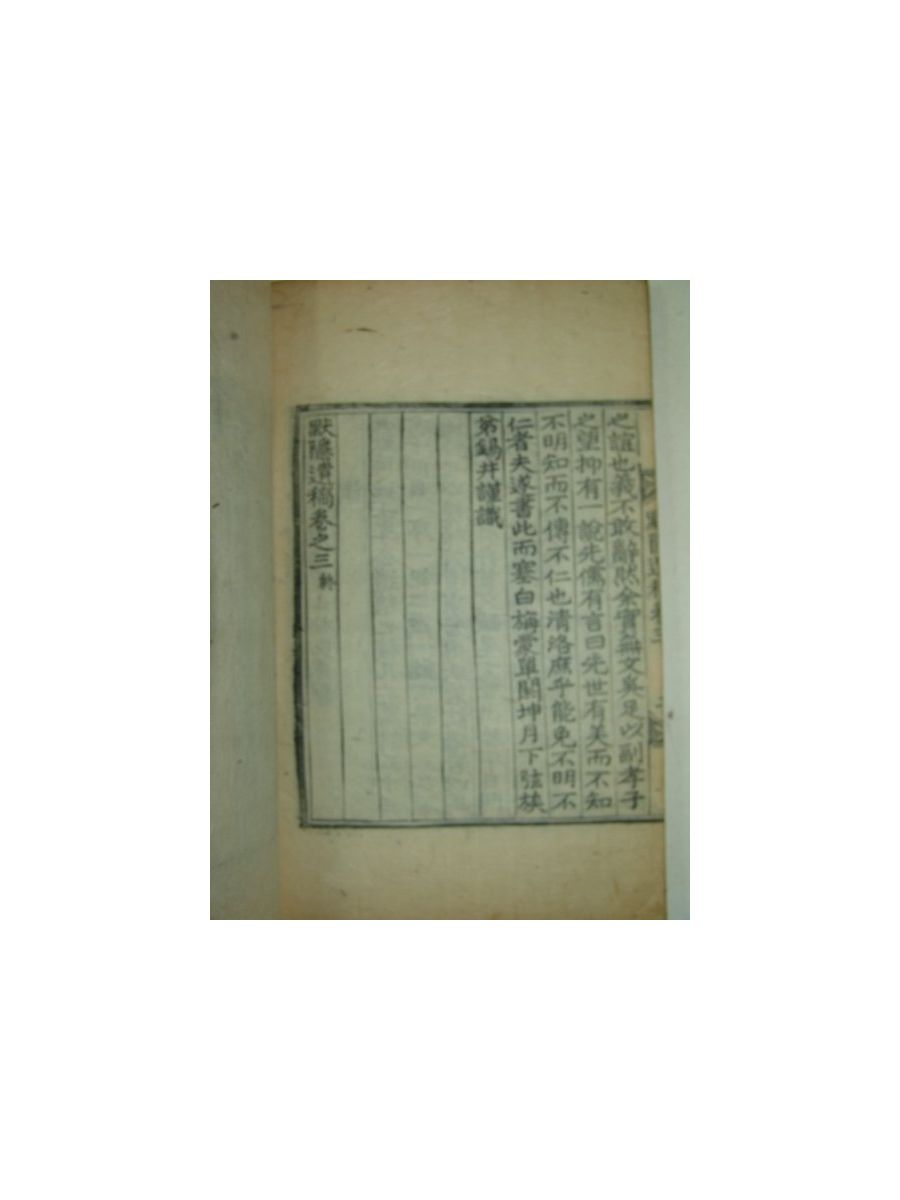 之誼也義不敢辭然余實無文奚足以副孝子
之望抑有一說先儒有言曰先世有美而不知
不明知而不傳不仁也清洛庶乎能免不明不
仁者夫遂書此而塞白旃蒙單閼坤月下弦族
弟錫井謹識
默隱遺稿卷之三 終